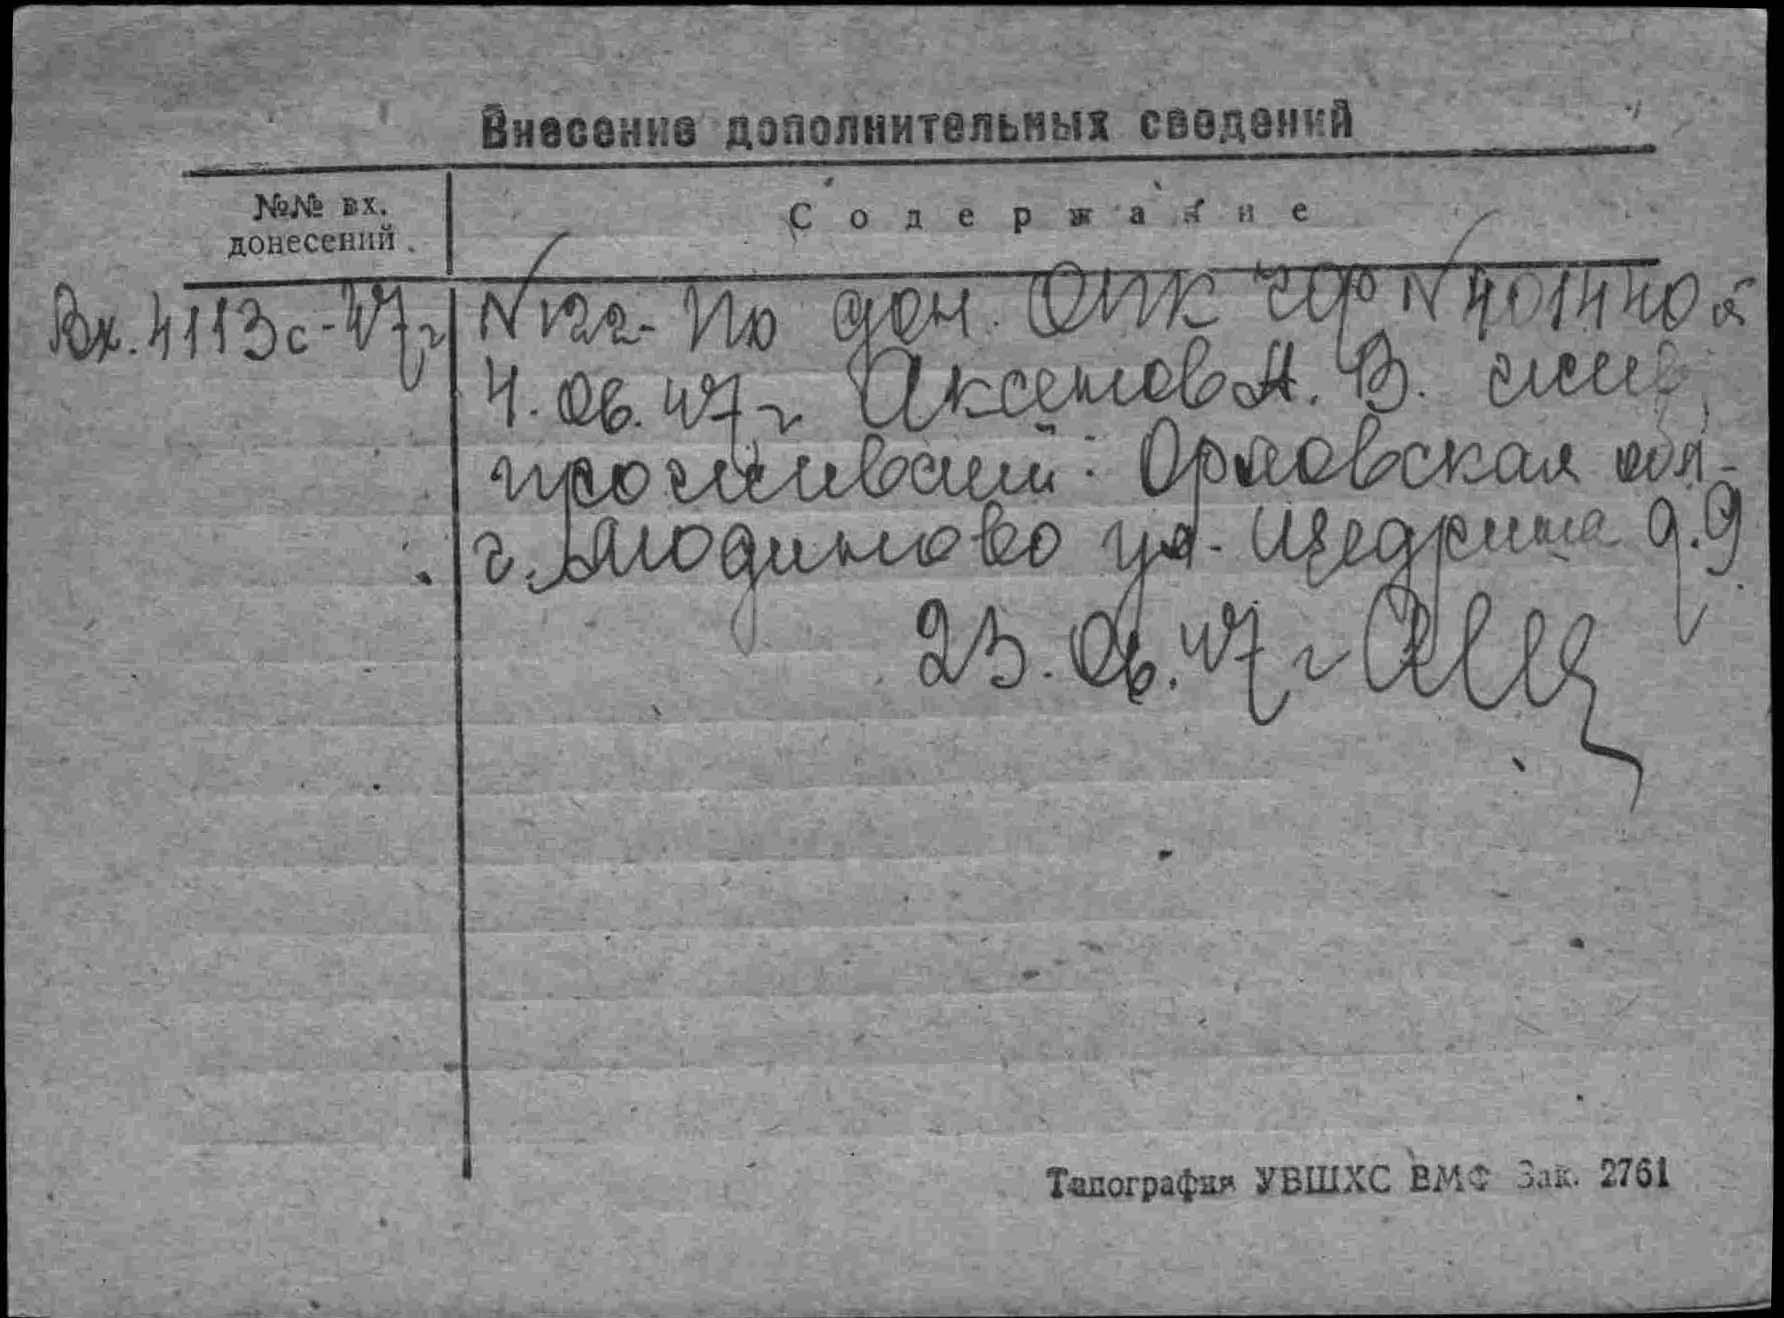 Внесение дополнительных сведений
№№ вх. донесений
Содержание
Вх. 4113с-47г
N122- По дон. ОПК ЧФ N 401440 от
4.06.47г Аксенов А. В. жив,
проживает: Орловская обл.
г. Людиново ул. Щедрина д. 9
23.06.47г
Типография УВШХС ВМФ Зак. 2761